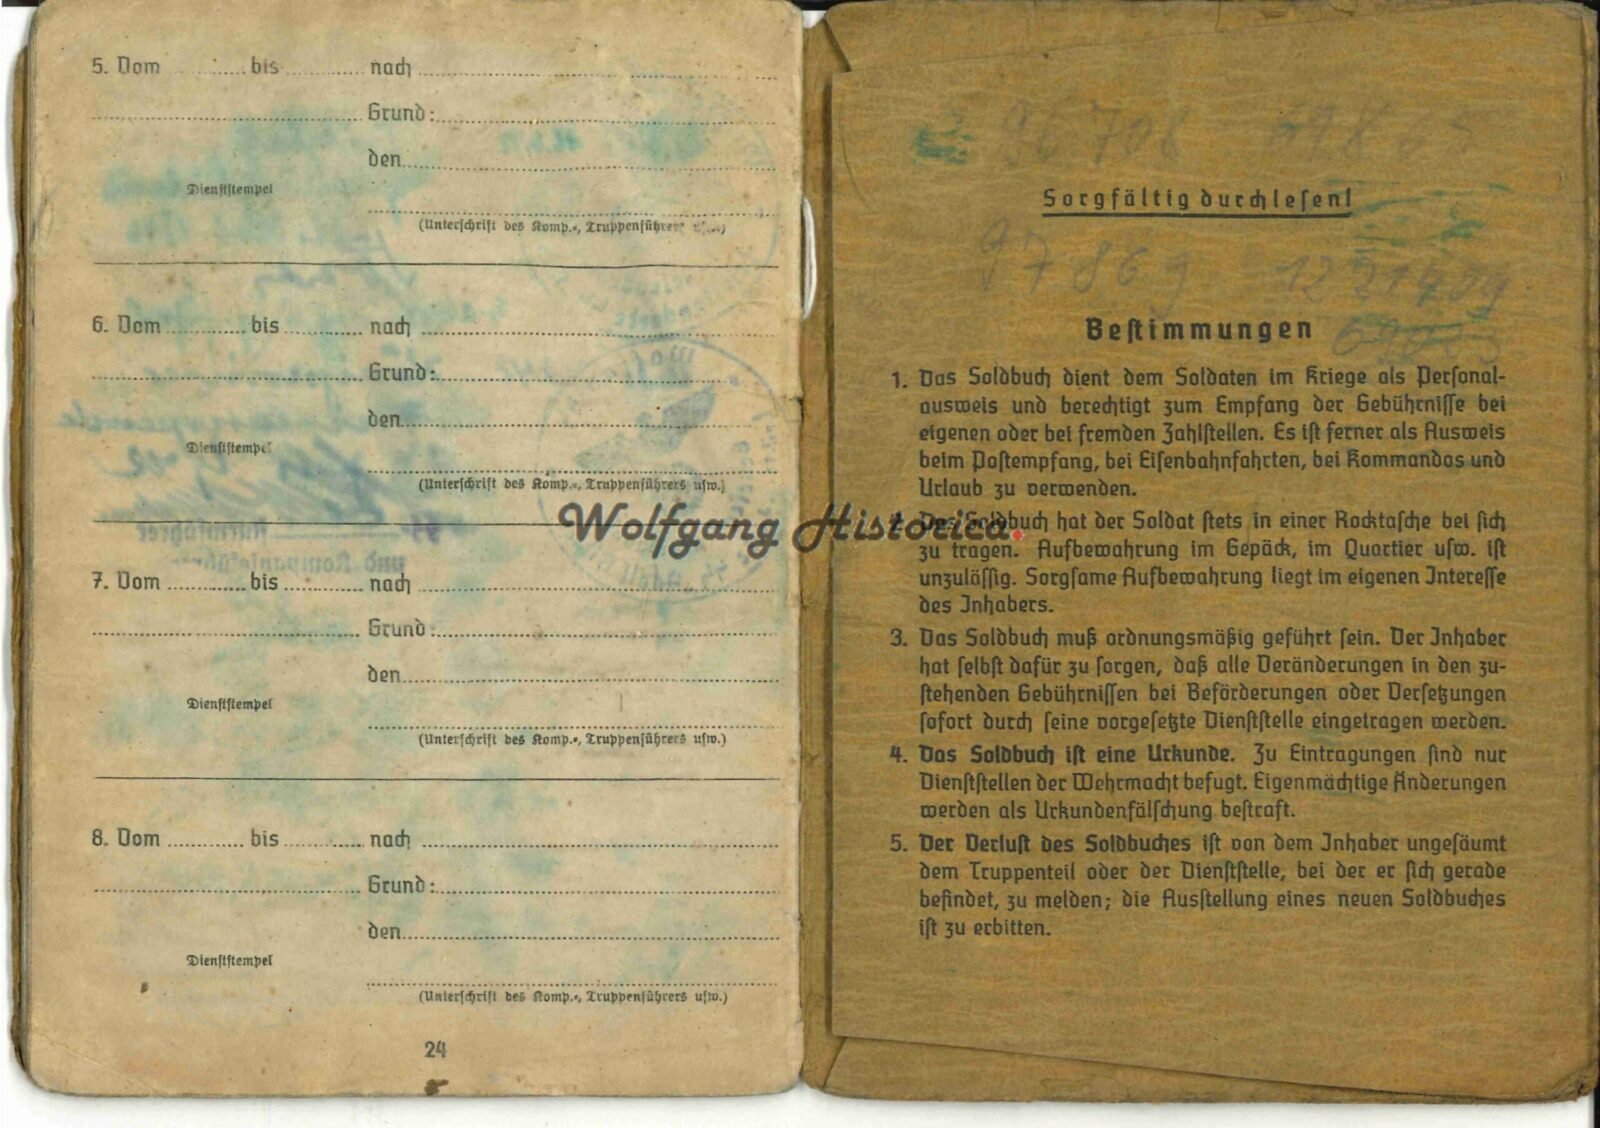 5. Vom ........ bis ........ nach ........
Grund: ........
den ........
Dienststempel
(Unterschrift des Komp.-, Truppenführers usw.)
6. Vom ........ bis ........ nach ........
Grund: ........
den ........
Dienststempel
(Unterschrift des Komp.-, Truppenführers usw.)
7. Vom ........ bis ........ nach ........
Grund: ........
den ........
Dienststempel
(Unterschrift des Komp.-, Truppenführers usw.)
8. Vom ........ bis ........ nach ........
Grund: ........
den ........
Dienststempel
(Unterschrift des Komp.-, Truppenführers usw.)
24
Wolfgang Historica.
96708
Sorgfältig durchlesen!
97869
Bestimmungen
1. Das Soldbuch dient dem Soldaten im Kriege als Personal-
ausweis und berechtigt zum Empfang der Gebührnisse bei
eigenen oder bei fremden Zahlstellen. Es ist ferner als Ausweis
beim Postempfang, bei Eisenbahnfahrten, bei Kommandos und
Urlaub zu verwenden.
2. Das Soldbuch hat der Soldat stets in einer Rocktasche bei sich
zu tragen. Aufbewahrung im Gepäck, im Quartier usw. ist
unzulässig. Sorgsame Aufbewahrung liegt im eigenen Interesse
des Inhabers.
3. Das Soldbuch muß ordnungsmäßig geführt sein. Der Inhaber
hat selbst dafür zu sorgen, daß alle Veränderungen in den zu-
stehenden Gebührnissen bei Beförderungen oder Versetzungen
sofort durch seine vorgesetzte Dienststelle eingetragen werden.
4. Das Soldbuch ist eine Urkunde. Zu Eintragungen sind nur
Dienststellen der Wehrmacht befugt. Eigenmächtige Änderungen
werden als Urkundenfälschung bestraft.
5. Der Verlust des Soldbuches ist von dem Inhaber ungesäumt
dem Truppenteil oder der Dienststelle, bei der er sich gerade
befindet, zu melden; die Ausstellung eines neuen Soldbuches
ist zu erbitten.